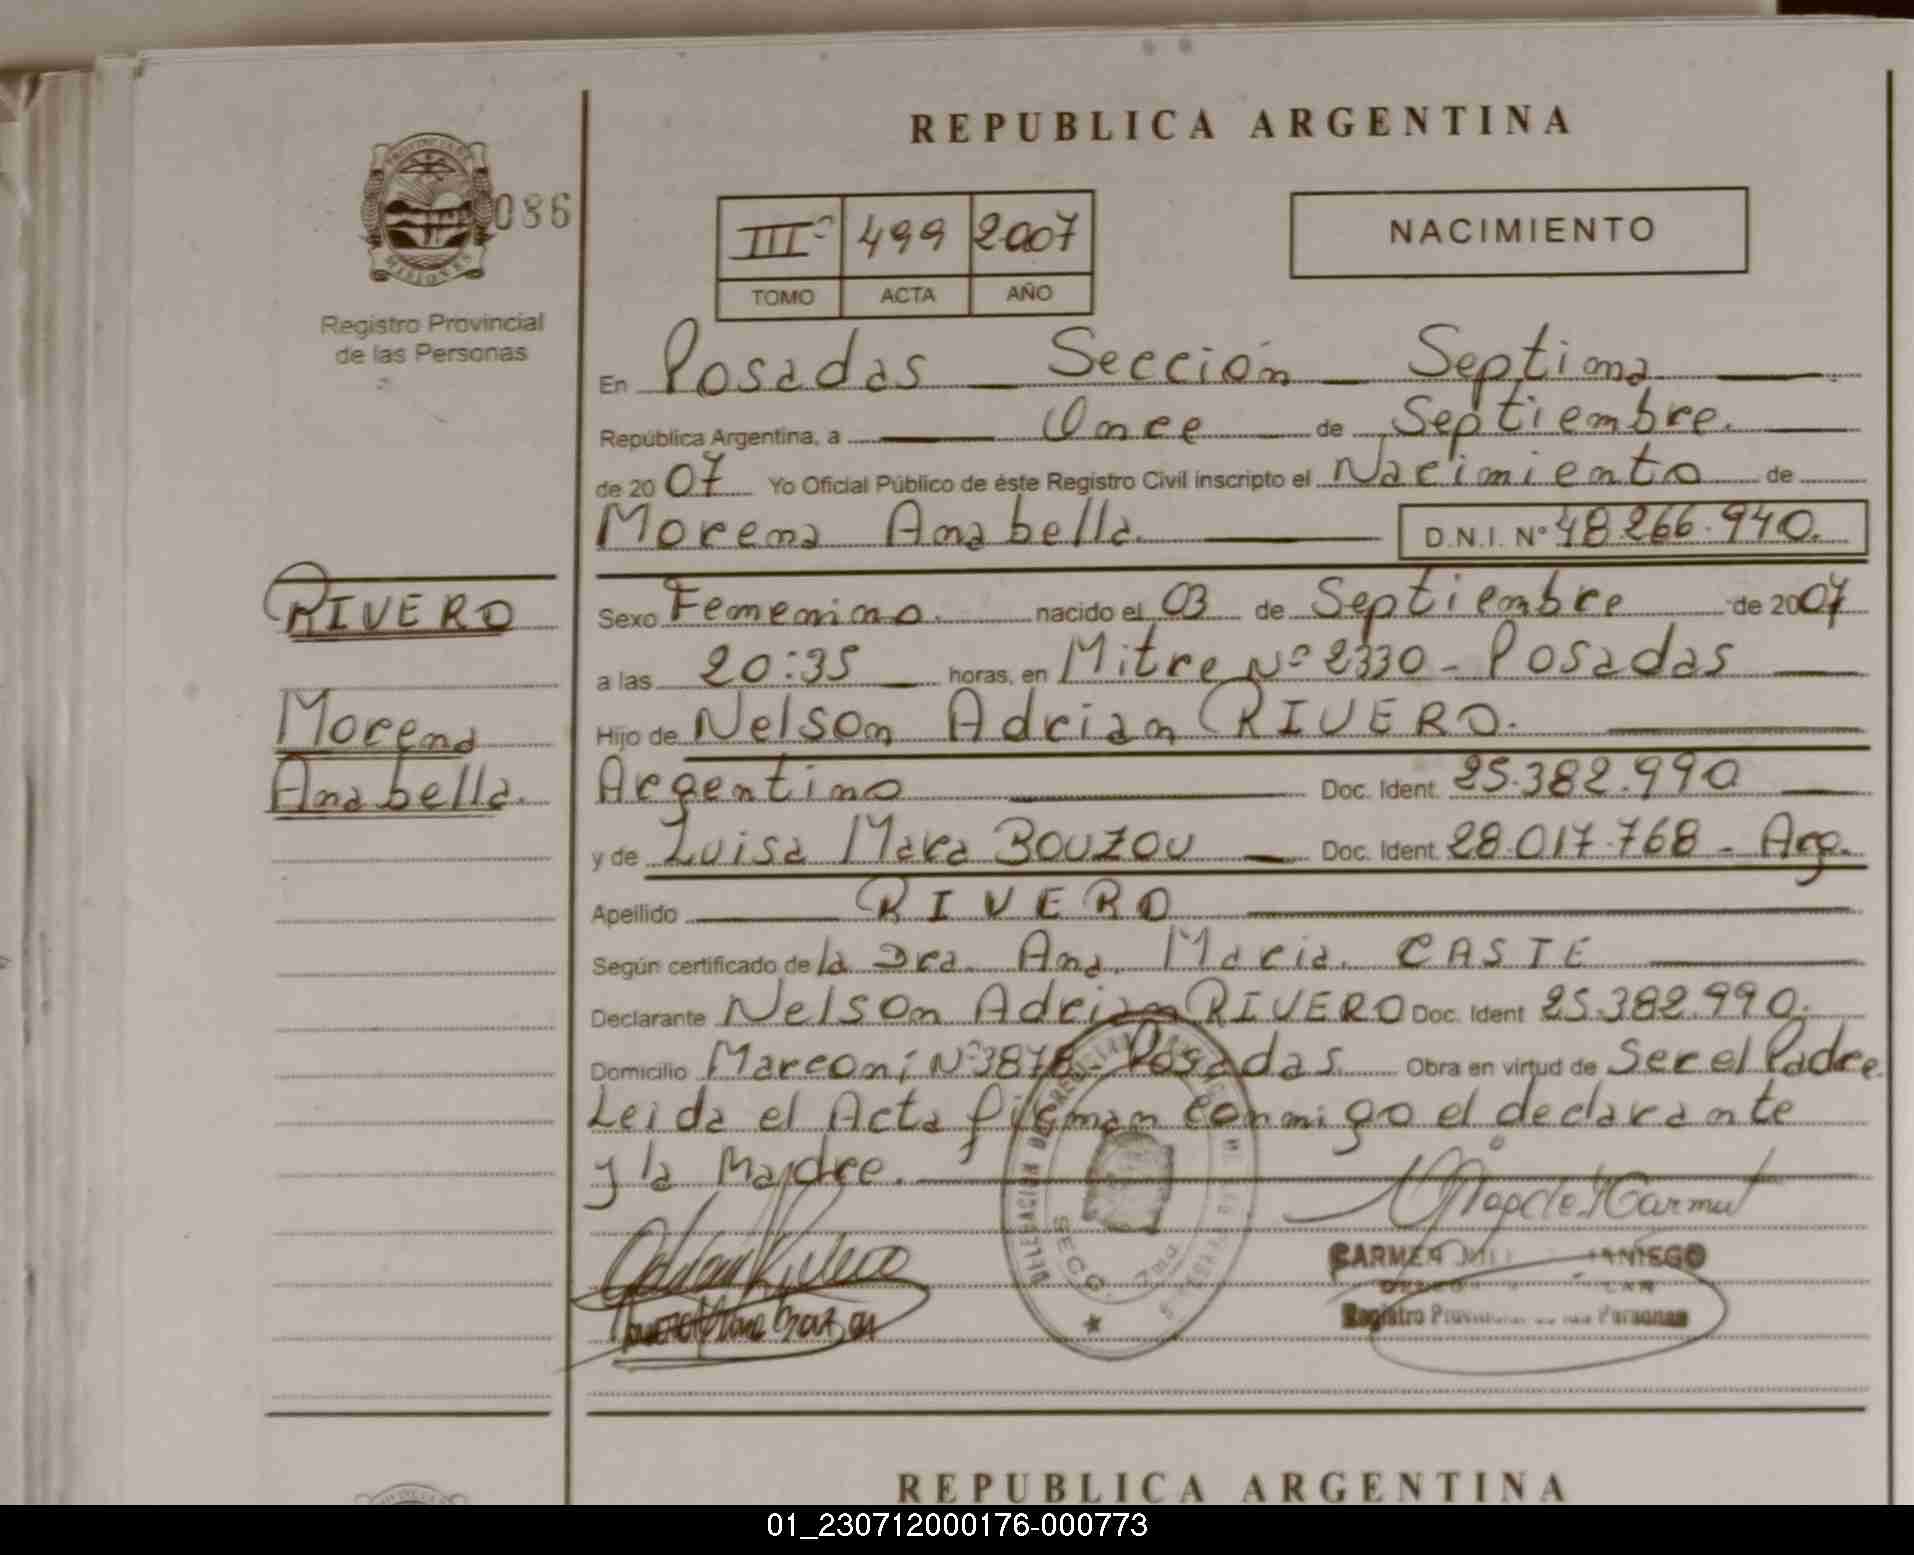 REPUBLICA ARGENTINA
PROVINCIA DE
MISIONES
086
Registro Provincial
de las Personas
IIIº 499 2007
TOMO ACTA AÑO
NACIMIENTO
En Posadas Sección Septima
República Argentina, a Once de Septiembre.
de 2007 Yo Oficial Público de éste Registro Civil inscripto el Nacimiento de
Morena Anabella. D.N.I. Nº 48.266.940.
RIVERO
Morena
Anabella.
Sexo Femenino. nacido el 03 de Septiembre de 2007
a las 20:35 horas, en Mitre Nº 2330 - Posadas
Hijo de Nelson Adrian RIVERO.
Argentino Doc. Ident. 25.382.990
y de Luisa Mara BOUZOU Doc. Ident. 28.017.768 - Arg.
Apellido RIVERO
Según certificado de la Dra. Ana Maria CASTE
Declarante Nelson Adrian RIVERO Doc. Ident 25.382.990.
Domicilio Marconi Nº 3878 - Posadas. Obra en virtud de Ser el Padre
Leida el Acta firman conmigo el declarante
y la Madre.
DELEGACION
SECC. 7ma
CARMEN
Registro Personas
REPUBLICA ARGENTINA
01_230712000176-000773